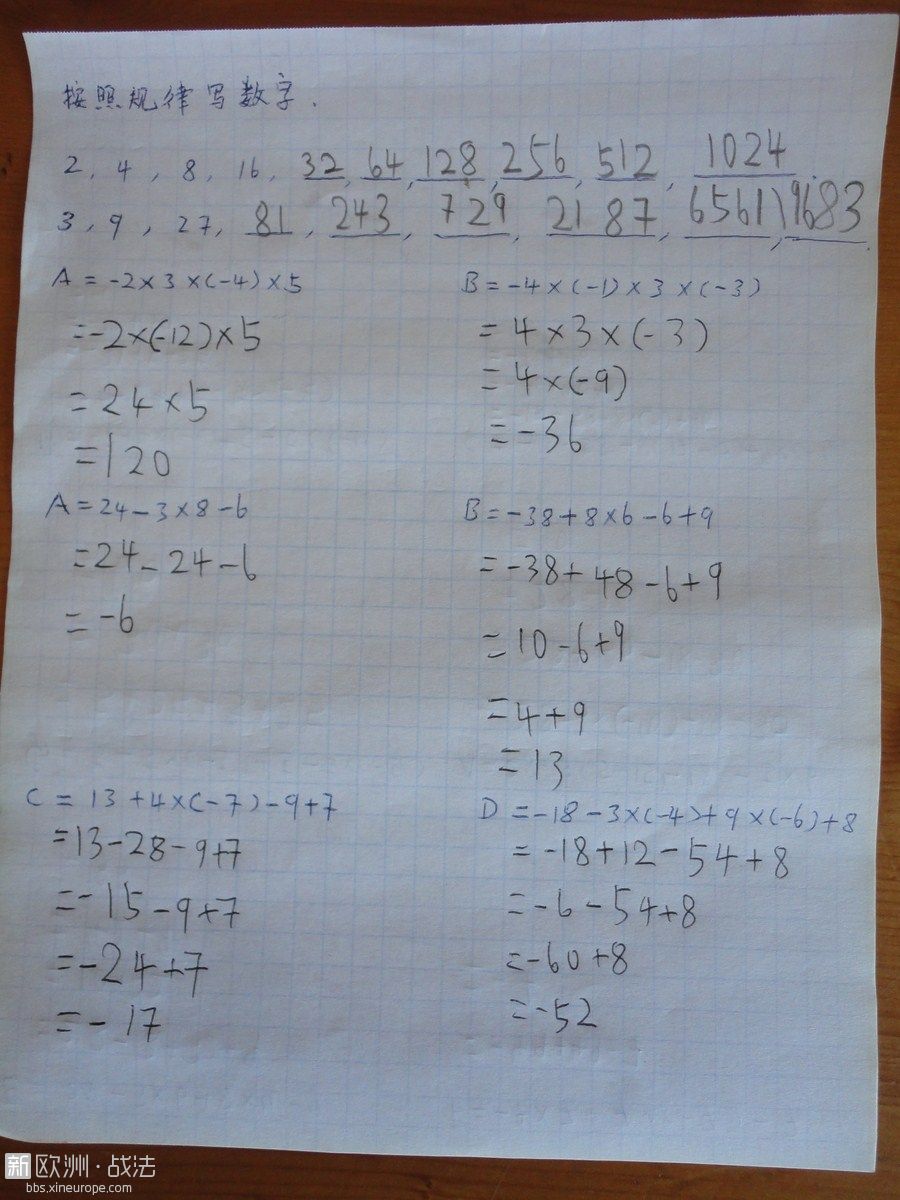 按照规律写数字.
2, 4, 8, 16, 32, 64, 128, 256, 512, 1024.
3, 9, 27, 81, 243, 729, 2187, 6561, 19683.
A = -2×3×(-4)×5
=-2×(-12)×5
= 24×5
=120
B = -4×(-1)×3×(-3)
= 4×3×(-3)
= 4×(-9)
= -36
A = 24-3×8-6
=24-24-6
= -6
B = -38+8×6-6+9
= -38+48-6+9
= 10-6+9
= 4+9
= 13
C = 13+4×(-7)-9+7
=13-28-9+7
=-15-9+7
=-24+7
=-17
D = -18-3×(-4)+9×(-6)+8
= -18+12-54+8
= -6-54+8
=-60+8
=-52
新欧洲·战法
bbs.xineurope.com